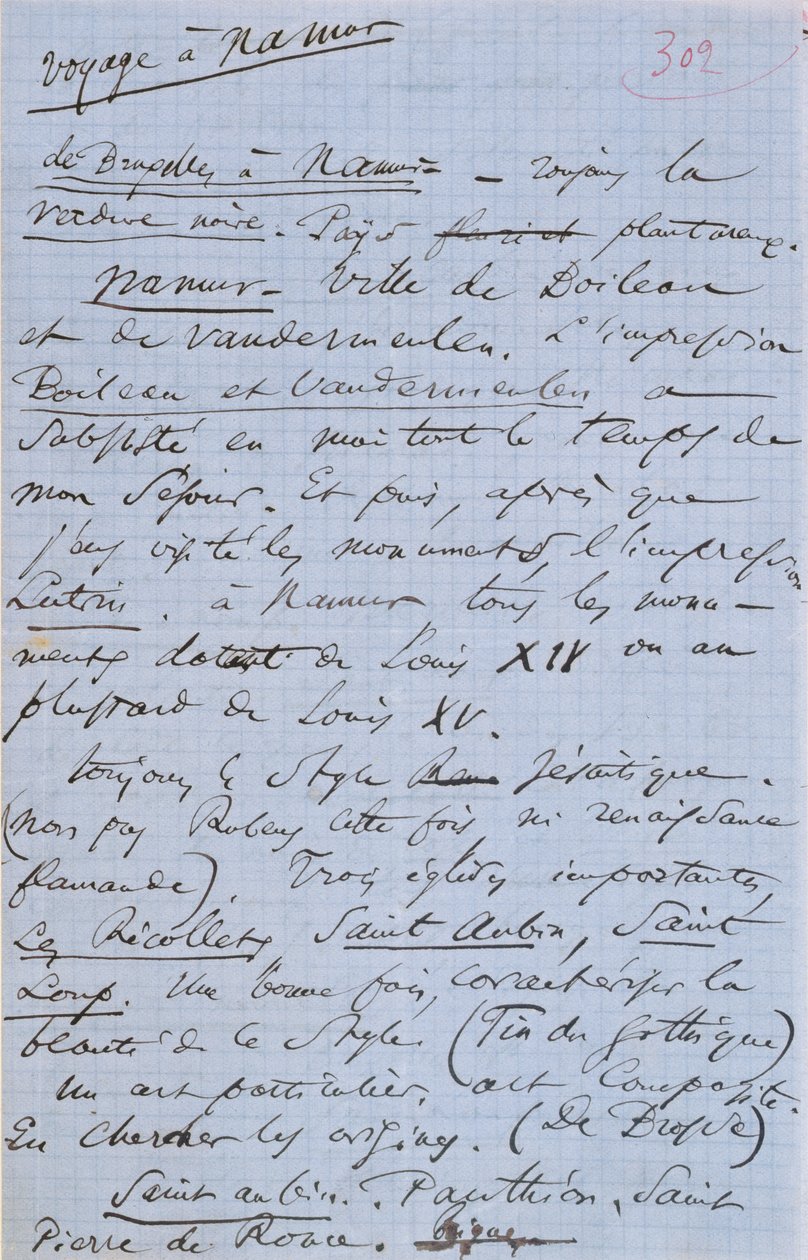 Voyage à Namur
302
de Bruxelles à Namur – Toujours la
verdure noire. Pays fleuri et plantureux.
Namur – Ville de Boileau
et de Vandermeulen. L'impression
Boileau et Vandermeulen a
subsisté en moi tout le temps de
mon séjour. Et puis, après que
j'eus visité les monuments, l'impression
Lutrin. à Namur tous les monu-
ments datent de Louis XIV ou au
plus tard de Louis XV.
Toujours le style Jésuitique.
(non pas Rubens cette fois, ni renaissance
flamande). Trois églises importantes,
Les Récollets, Saint Aubin, Saint
Loup. Une bonne fois, caractériser la
beauté de ce style (Fin du gothique)
Un art particulier, art composite.
En chercher les origines. (De Brosse)
Saint aubin. Panthéon, Saint
Pierre de Rome.